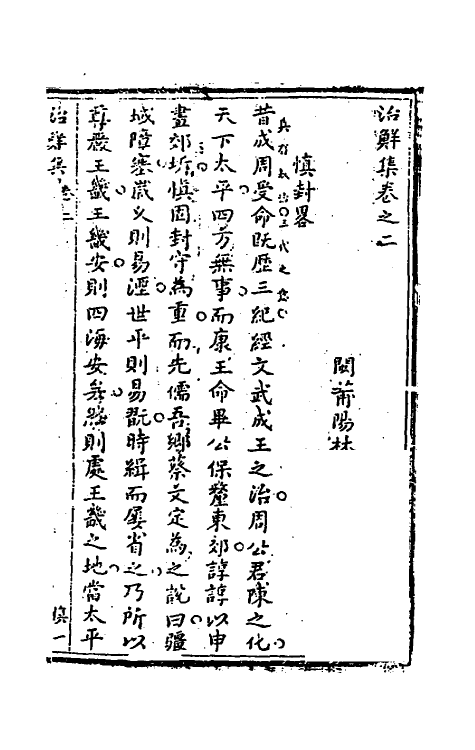 治鮮集卷之二
閩莆陽林
慎封畧
昔成周受命既歷三紀經文武成王之治周公君陳之化
天下太平四方無事而康王命畢公保釐東郊諄諄以申
畫郊圻慎固封守為重而先儒吾鄉蔡文定為之說曰疆
域障塞歲久則易湮世平則易翫時緝而屢省之乃所以
尊嚴王畿王畿安則四海安矣然則處王畿之地當太平
治鮮集 卷二
慎一